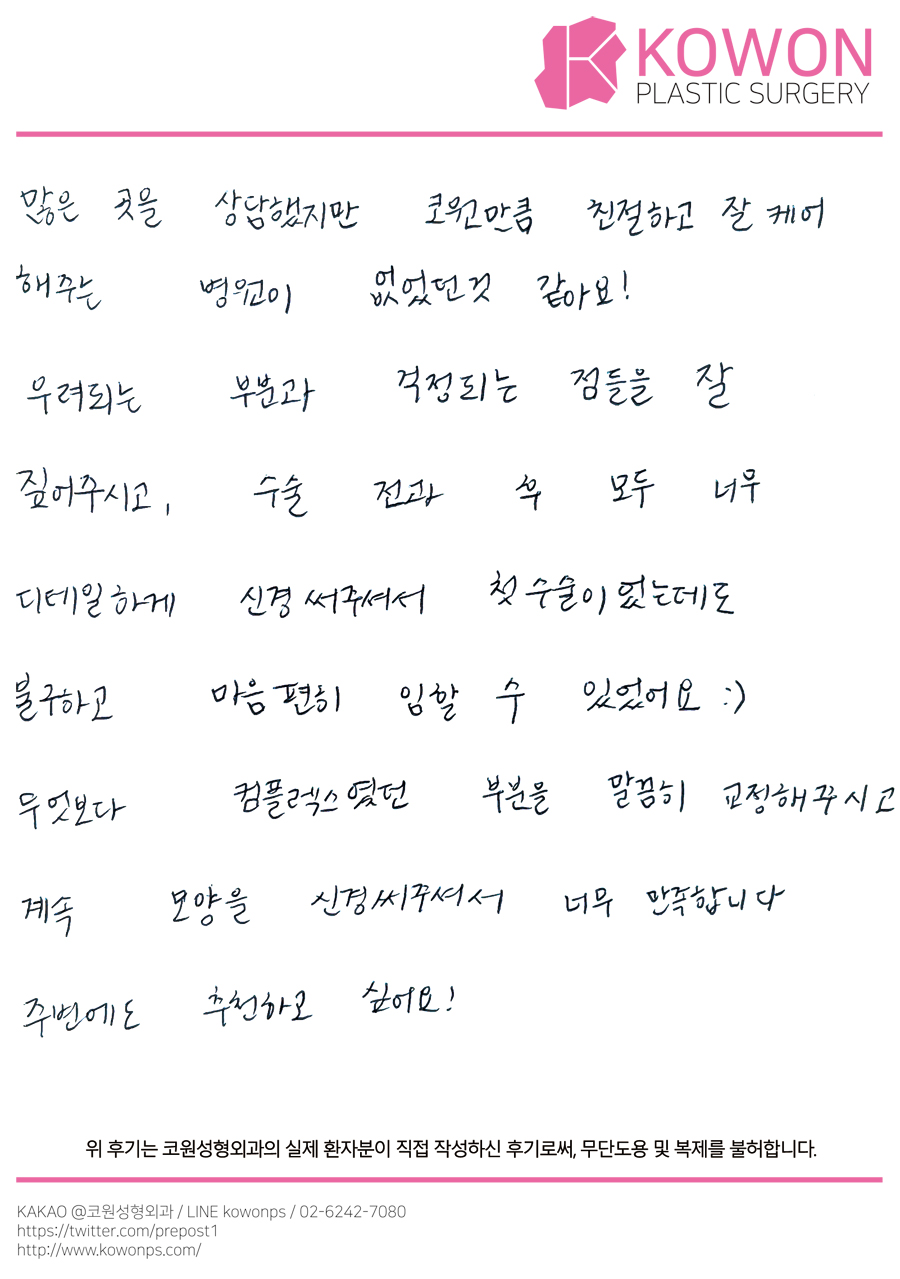 KOWON
PLASTIC SURGERY
많은 곳을 상담했지만 코원만큼 친절하고 잘 케어
해주는 병원이 없었던것 같아요!
우려되는 부분과 걱정되는 점들을 잘
짚어주시고, 수술 전과 후 모두 너무
디테일하게 신경써주셔서 첫수술이었는데도
불구하고 마음편히 임할 수 있었어요 :)
무엇보다 컴플렉스였던 부분을 말끔히 교정해주시고
계속 모양을 신경써주셔서 너무 만족합니다
주변에도 추천하고 싶어요!
위 후기는 코원성형외과의 실제 환자분이 직접 작성하신 후기로써, 무단도용 및 복제를 불허합니다.
KAKAO @코원성형외과 / LINE kowonps / 02-6242-7080
https://twitter.com/prepost1
http://www.kowonps.com/